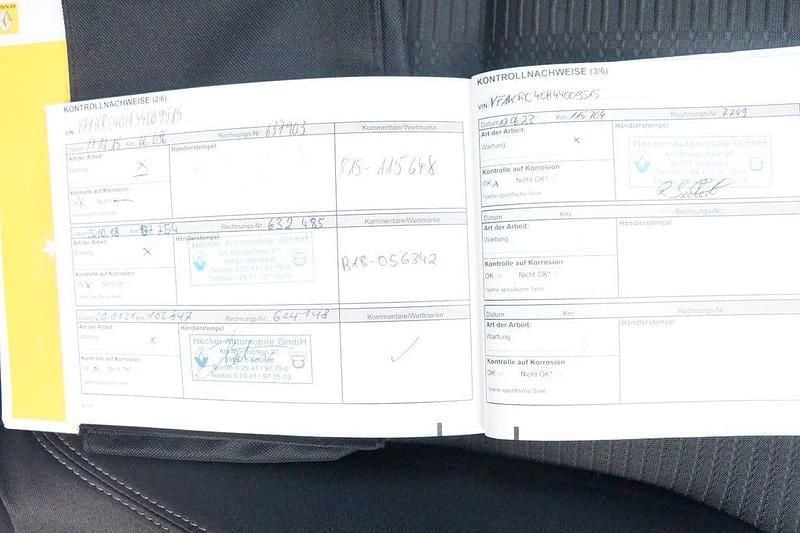 KONTROLLNACHWEISE (2/6)
VIN: VF1KRC40H44009515
Datum 11.12.15 km 16.096 Rechnungs-Nr. 637903
Art der Arbeit: Händlerstempel Kommentare/Wertmarke
Wartung X
R15-115648
Kontrolle auf Korrosion
OK X Nicht OK*
*siehe spezifische Seite
Datum 5.10.18 km 57754 Rechnungs-Nr. 632485
Art der Arbeit: Händlerstempel Kommentare/Wertmarke
Wartung X
Hecker Automobile GmbH
Am Mondschein 27
59557 Lippstadt
Telefon 0 29 41 / 97 75-0
Telefax 0 29 41 / 97 75-19
R18-056342
Kontrolle auf Korrosion
OK X Nicht OK*
*siehe spezifische Seite
Datum 20.01.21 km 102847 Rechnungs-Nr. 624148
Art der Arbeit: Händlerstempel Kommentare/Wertmarke
Wartung X
Hecker Automobile GmbH
Am Mondschein 27
Telefon 0 29 41 / 97 75-0
Telefax 0 29 41 / 97 75-19
Kontrolle auf Korrosion
OK X Nicht OK*
*siehe spezifische Seite
KONTROLLNACHWEISE (3/6)
VIN: VF1KRC40H44009515
Datum Km 115764 Rechnungs-Nr. 7749
Art der Arbeit: Händlerstempel
Wartung X
Hecker Automobile GmbH
Am Mondschein 27
59557 Lippstadt
Kontrolle auf Korrosion
OK X Nicht OK*
*siehe spezifische Seite
Datum Km Rechnungs-Nr.
Art der Arbeit: Händlerstempel
Wartung
Kontrolle auf Korrosion
OK Nicht OK*
*siehe spezifische Seite
Datum Km Rechnungs-Nr.
Art der Arbeit: Händlerstempel
Wartung
Kontrolle auf Korrosion
OK Nicht OK*
*siehe spezifische Seite